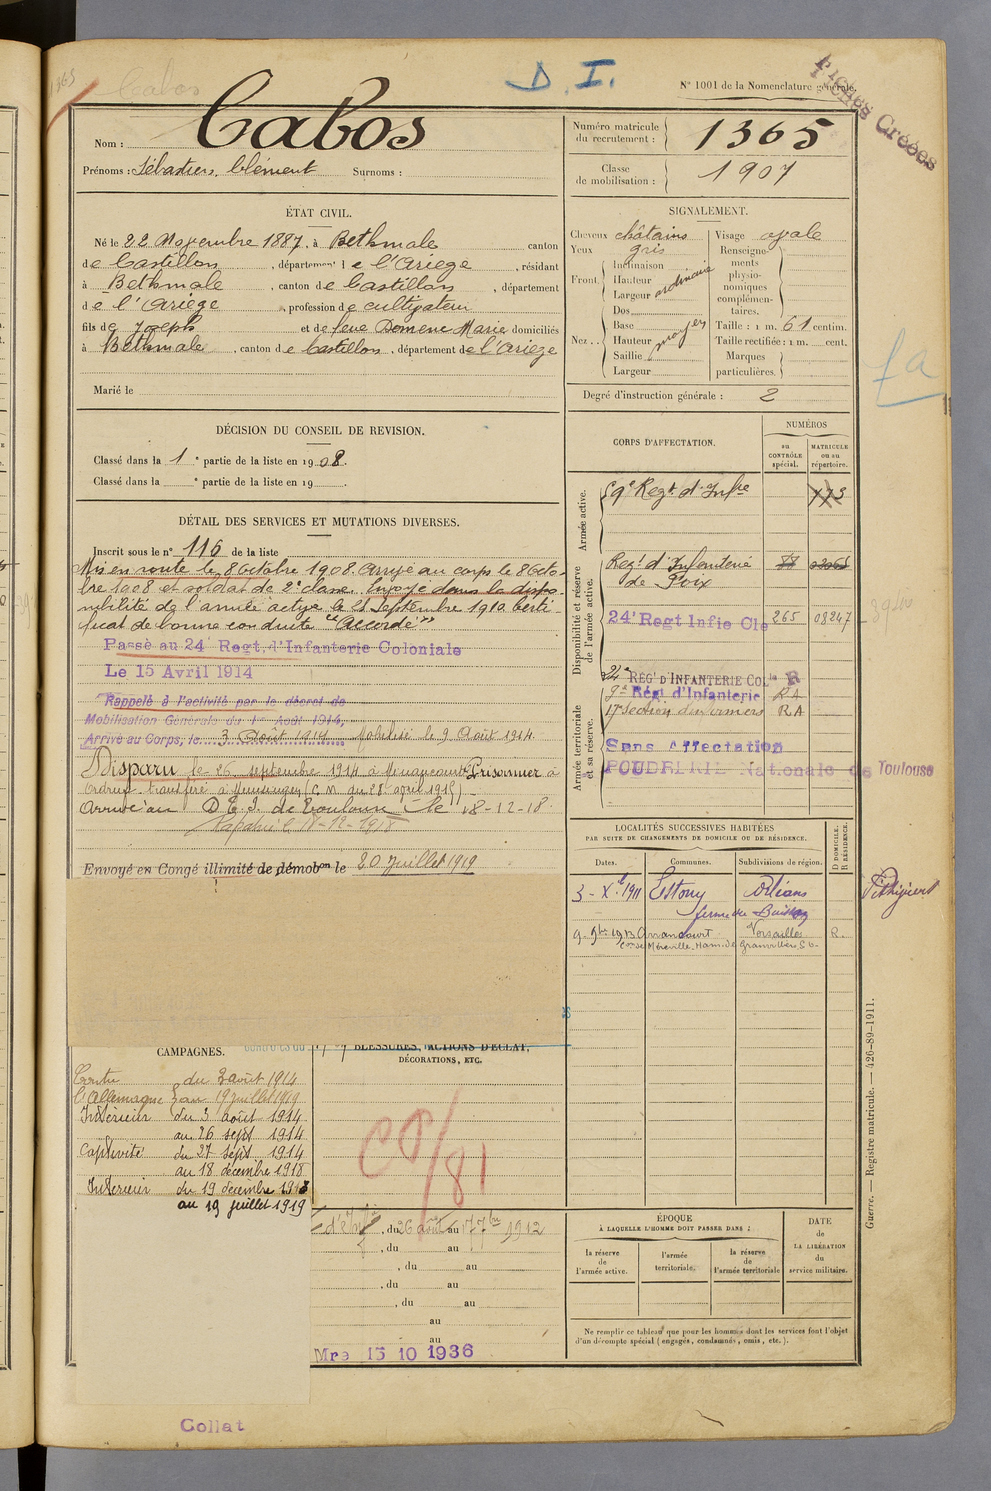 1365
Cabos
D. I.
N° 1001 de la Nomenclature générale.
Fiches Créées
Nom : Cabos
Prénoms : Sébastien, Clément Surnoms :
Numéro matricule du recrutement : 1365
Classe de mobilisation : 1907
ÉTAT CIVIL.
Né le 22 Novembre 1887, à Bethmale canton
de Castillon, département de l'Ariege, résidant
à Bethmale, canton de Castillon, département
de l'Ariège, profession de cultivateur
fils de Joseph et de feue Domenc Marie domiciliés
à Bethmale, canton de Castillon, département de l'Ariège
Marié le
SIGNALEMENT.
Cheveux châtains
Yeux gris
Front Inclinaison
Hauteur
Largeur
ordinaire
Nez Dos
Base
Hauteur
Saillie
Largeur
moyen
Visage ovale
Renseignements physionomiques complémentaires.
Taille : 1 m. 61 centim.
Taille rectifiée : 1 m. cent.
Marques particulières.
Degré d'instruction générale : 2
DÉCISION DU CONSEIL DE REVISION.
Classé dans la 1e partie de la liste en 1908.
Classé dans la e partie de la liste en 19
DÉTAIL DES SERVICES ET MUTATIONS DIVERSES.
Inscrit sous le n° 116 de la liste
Mis en route le 8 Octobre 1908. Arrivé au corps le 8 Octo-
bre 1908 et soldat de 2e classe. Envoyé dans la dispo-
nibilité de l'armée active le 25 Septembre 1910 Certi-
ficat de bonne conduite "Accordé"
Passé au 24 Regt. d'Infanterie Coloniale
Le 15 Avril 1914
Rappelé à l'activité par le décret de
Mobilisation Générale du 1er Août 1914,
Arrivé au Corps, le 3 Août 1914 Mobilisé le 9 Août 1914.
Disparu le 26 septembre 1914 à Prisonnier à
transféré à Munsingen (C. N. du 28 avril 1915)
Arrivé au D. T. I. de Toulouse le 18-12-18.
Rapatrié le 18-12-1918
Envoyé en Congé illimité de démobon le 20 Juillet 1919
CORPS D'AFFECTATION.
NUMÉROS
au CONTRÔLE spécial.
MATRICULE ou au répertoire.
Armée active.
59e Regt. d'Infre
Disponibilité et réserve de l'armée active.
Regt d'Infanterie de Foix
24e Regt Infie Cle 265 08247
Armée territoriale et sa réserve.
24e RÉGt D'INFANTERIE COLle R
9e Régt d'Infanterie RA
17e Section d'infirmiers RA
Sans Affectation
POUDRERIE Nationale de Toulouse
LOCALITÉS SUCCESSIVES HABITÉES
PAR SUITE DE CHANGEMENTS DE DOMICILE OU DE RÉSIDENCE.
Dates.
Communes.
Subdivisions de région.
D DOMICILE. R RÉSIDENCE.
3 - Xe. 1911 Estouy Orléans Pithiviers
ferme du Buisson
9. 9bre 1913 Arrancourt Versailles R.
Con de Méréville,
CAMPAGNES.
BLESSURES, ACTIONS D'ÉCLAT,
DÉCORATIONS, ETC.
Contre du 3 août 1914
l'Allemagne au 19 juillet 1919
Intérieur du 3 août 1914
au 26 sept 1914
Captivité du 27 sept 1914
au 18 décembre 1918
Intérieur du 19 décembre 1918
au 19 juillet 1919
CP/81
, du 26 août au 17 7bre 1912
, du au
, du au
, du au
, du au
au
au
Mre 15 10 1936
ÉPOQUE
À LAQUELLE L'HOMME DOIT PASSER DANS :
la réserve de l'armée active.
l'armée territoriale.
la réserve de l'armée territoriale
DATE de LA LIBÉRATION du service militaire.
Ne remplir ce tableau que pour les hommes dont les services font l'objet
d'un décompte spécial (engagés, condamnés, omis, etc.).
Guerre. — Registre matricule. — 426-89-1911.
Collat